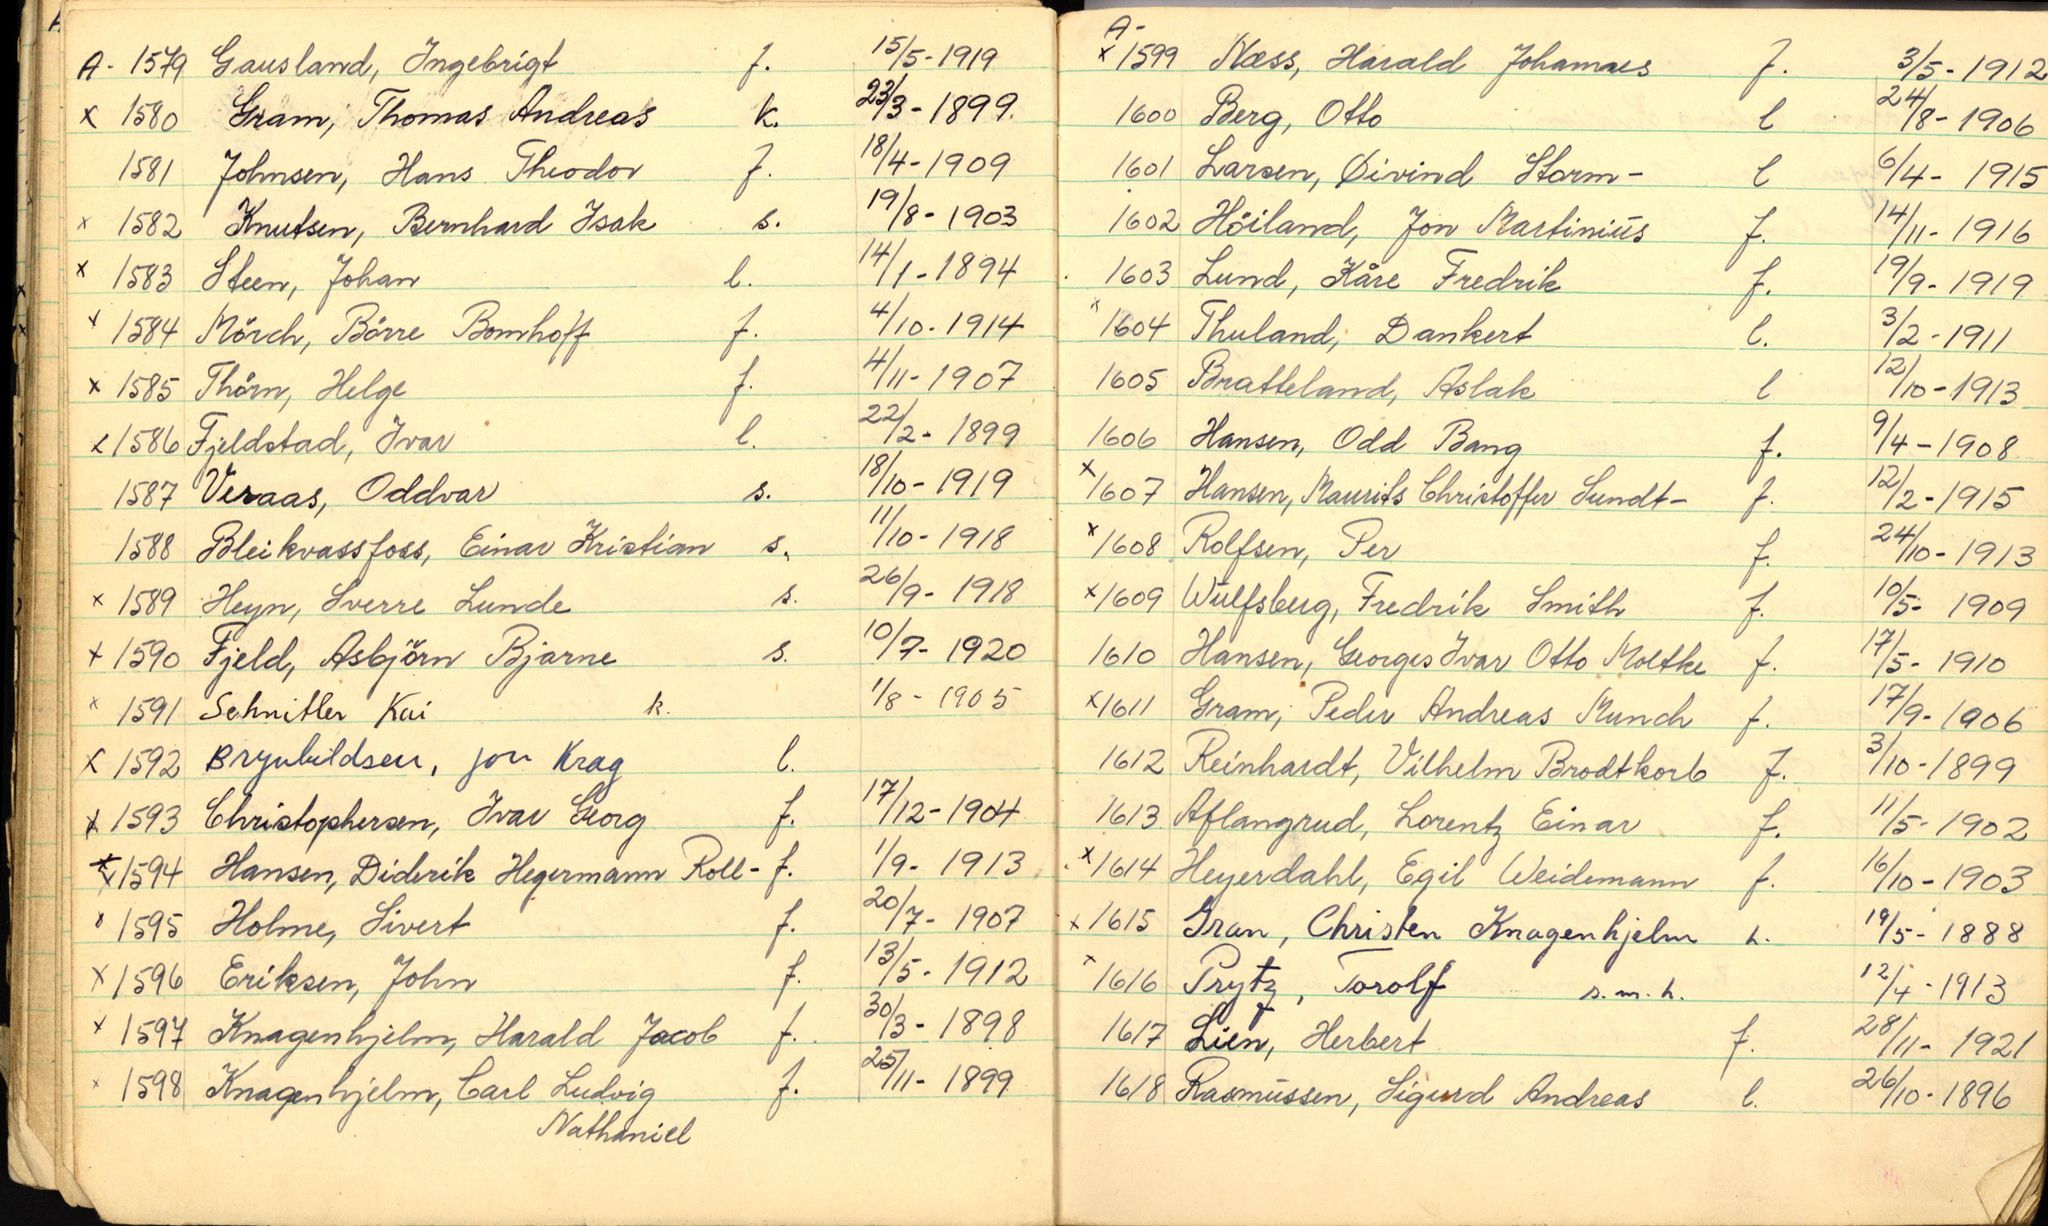 A- 1579 Gausland, Ingebrigt f. 15/5-1919
x 1580 Gram, Thomas Andreas k. 23/3-1899.
1581 Johnsen, Hans Theodor f. 18/4-1909
x 1582 Knutsen, Bernhard Isak s. 19/8-1903
x 1583 Steen, Johan l. 14/1-1894
x 1584 Mörch, Börre Bomhoff f. 4/10-1914
x 1585 Thörn, Helge f. 4/11-1907
x 1586 Fjeldstad, Ivar l. 22/2-1899
1587 Veraas, Oddvar s. 18/10-1919
1588 Bleikvassfoss, Einar Kristian s. 11/10-1918
x 1589 Heyn, Sverre Lunde s. 26/9-1918
x 1590 Fjeld, Asbjörn Bjarne s. 10/7-1920
x 1591 Schnitler Kai k. 1/8-1905
x 1592 Brynhildsen, Jon Krag l.
x 1593 Christophersen, Ivar Georg f. 17/12-1904
x 1594 Hansen, Diderik Hegermann Roll- f. 1/9-1913
x 1595 Holme, Sivert f. 20/7-1907
x 1596 Eriksen, John f. 13/5-1912
x 1597 Knagenhjelm, Harald Jacob f. 30/3-1898
x 1598 Knagenhjelm, Carl Ludvig f. 25/11-1899
Nathaniel
A-
x 1599 Næss, Harald Johannes f. 3/5-1912
1600 Berg, Otto l 24/8-1906
1601 Larsen, Øivind Storm- l 6/4-1915
1602 Höiland, Jon Martinius f. 14/11-1916
1603 Lund, Kåre Fredrik f. 19/9-1919
x 1604 Thuland, Dankert l. 3/2-1911
1605 Bratteland, Aslak l 12/10-1913
1606 Hansen, Odd Bang f. 9/4-1908
x 1607 Hansen, Maurits Christoffer Sundt- f. 12/2-1915
x 1608 Rolfsen, Per f. 24/10-1913
x 1609 Wulfsberg, Fredrik Smith f. 10/5-1909
1610 Hansen, Georges Ivar Otto Moltke f. 17/5-1910
x 1611 Gram, Peder Andreas Munch f. 17/9-1906
1612 Reinhardt, Vilhelm Brodtkorb f. 3/10-1899
1613 Aflangrud, Lorentz Einar f. 11/5-1902
x 1614 Heyerdahl, Egil Weidemann f. 16/10-1903
x 1615 Gran, Christen Knagenhjelm h. 19/5-1888
x 1616 Prytz, Torolf s.m.h. 12/4-1913
1617 Lien, Herbert f. 28/11-1921
1618 Rasmussen, Sigurd Andreas l. 26/10-1896